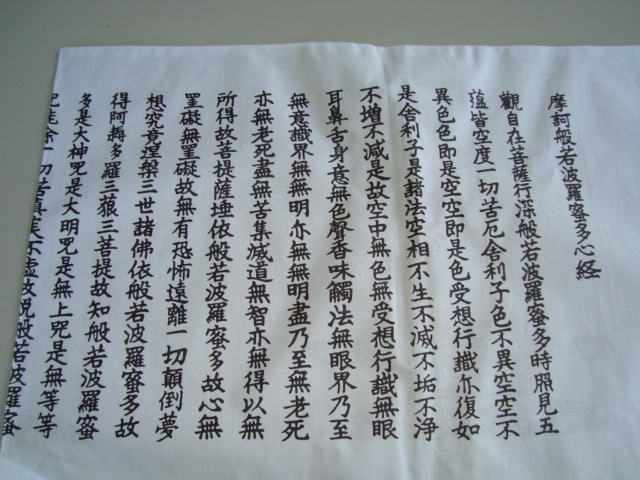 摩訶般若波羅蜜多心経
觀自在菩薩行深般若波羅蜜多時照見五
蘊皆空度一切苦厄舎利子色不異空空不
異色色即是空空即是色受想行識亦復如
是舎利子是諸法空相不生不滅不垢不浄
不増不減是故空中無色無受想行識無眼
耳鼻舌身意無色聲香味觸法無眼界乃至
無意識界無無明亦無無明盡乃至無老死
亦無老死盡無苦集滅道無智亦無得以無
所得故菩提薩埵依般若波羅蜜多故心無
罣礙無罣礙故無有恐怖遠離一切顛倒夢
想究竟涅槃三世諸佛依般若波羅蜜多故
得阿耨多羅三藐三菩提故知般若波羅蜜
多是大神咒是大明咒是無上咒是無等等
咒能除一切苦真実不虚故説般若波羅蜜